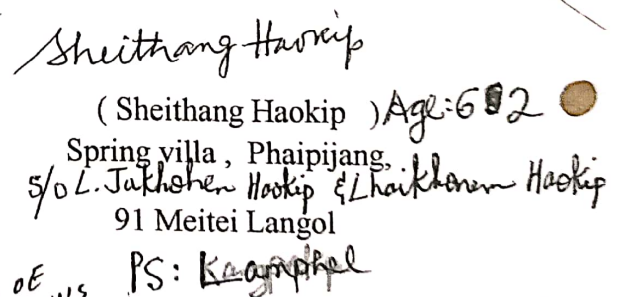 Sheithang Haokip
( Sheithang Haokip ) Age: 62
Spring villa , Phaipijang,
S/o L. Jakhohen Haokip & Lhaikhonem Haokip
91 Meitei Langol
PS:
OE